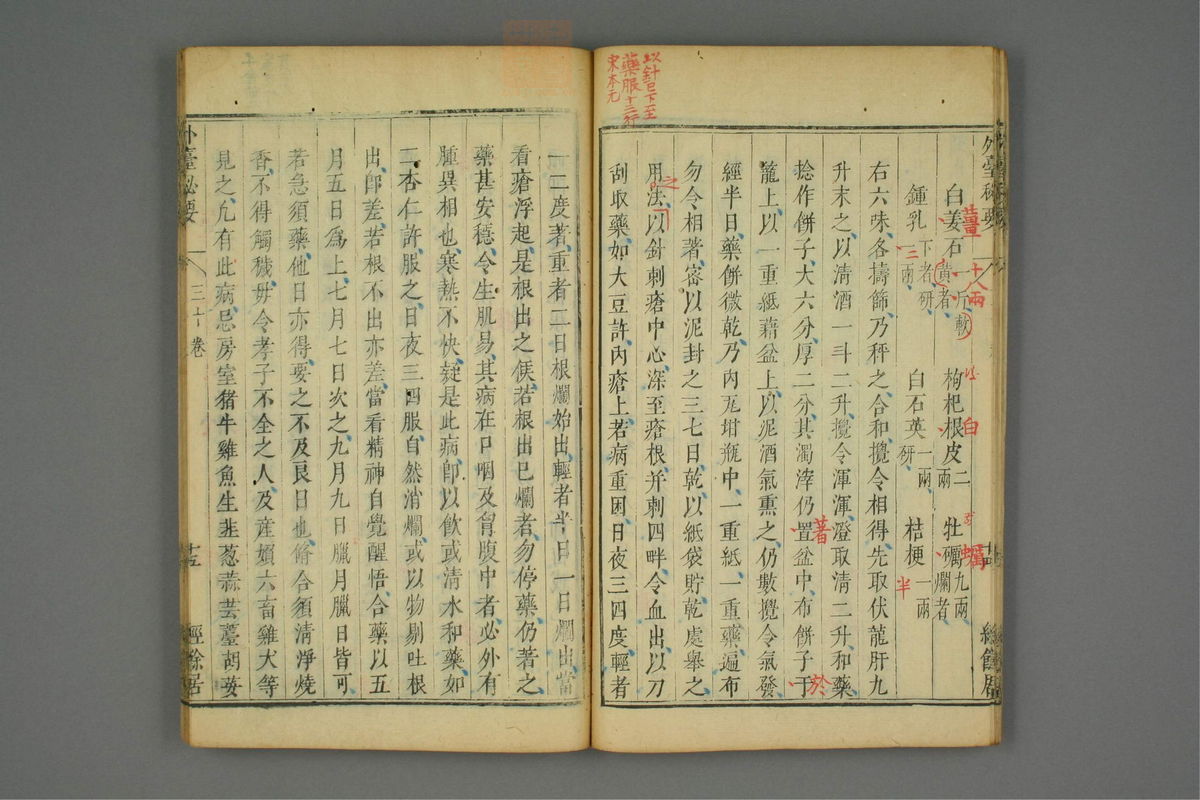 外臺秘要
三十卷
經餘居
白姜石一斤軟黄者研 枸杞根皮二兩 牡礪九兩爛者
鍾乳二兩 下者研 白石英一兩研 桔梗一兩
右六味各擣篩乃秤之合和攪令相得先取伏龍肝九
升末之以清酒一斗二升攪令渾渾澄取清二升和藥
捻作餅子大六分厚二分其濁滓仍置盆中布餅子于
籠上以一重紙藉盆上以泥酒氣熏之仍數攪令氣發
經半日藥餅微乾乃內瓦坩瓶中一重紙一重藥遍布
勿令相著密以泥封之三七日乾以紙袋貯乾處舉之
用法以針刺瘡中心深至瘡根并刺四畔令血出以刀
刮取藥如大豆許內瘡上若病重困日夜三四度輕者
薑
十八兩
白
蠣
三
半
著
於
之
以針已下至
藥服十三行
宋本元
一二度著重者二日根爛始出輕者半日一日爛出當
看瘡浮起是根出之候若根出已爛者勿停藥仍著之
藥甚安穩令生肌易其病在口咽及胷腹中者必外有
腫異相也寒熱不快疑是此病卽以飲或清水和藥如
二杏仁許服之日夜三四服自然消爛或以物剔吐根
出卽差若根不出亦差當看精神自覺醒悟合藥以五
月五日爲上七月七日次之九月九日臘月臘日皆可
若急須藥他日亦得要之不及良日也脩合須清淨燒
香不得觸穢毋令孝子不全之人及產婦六畜雞犬等
見之凢有此病忌房室猪牛雞魚生韮葱蒜芸薹胡荽
外臺秘要
三十卷
十五
經餘居